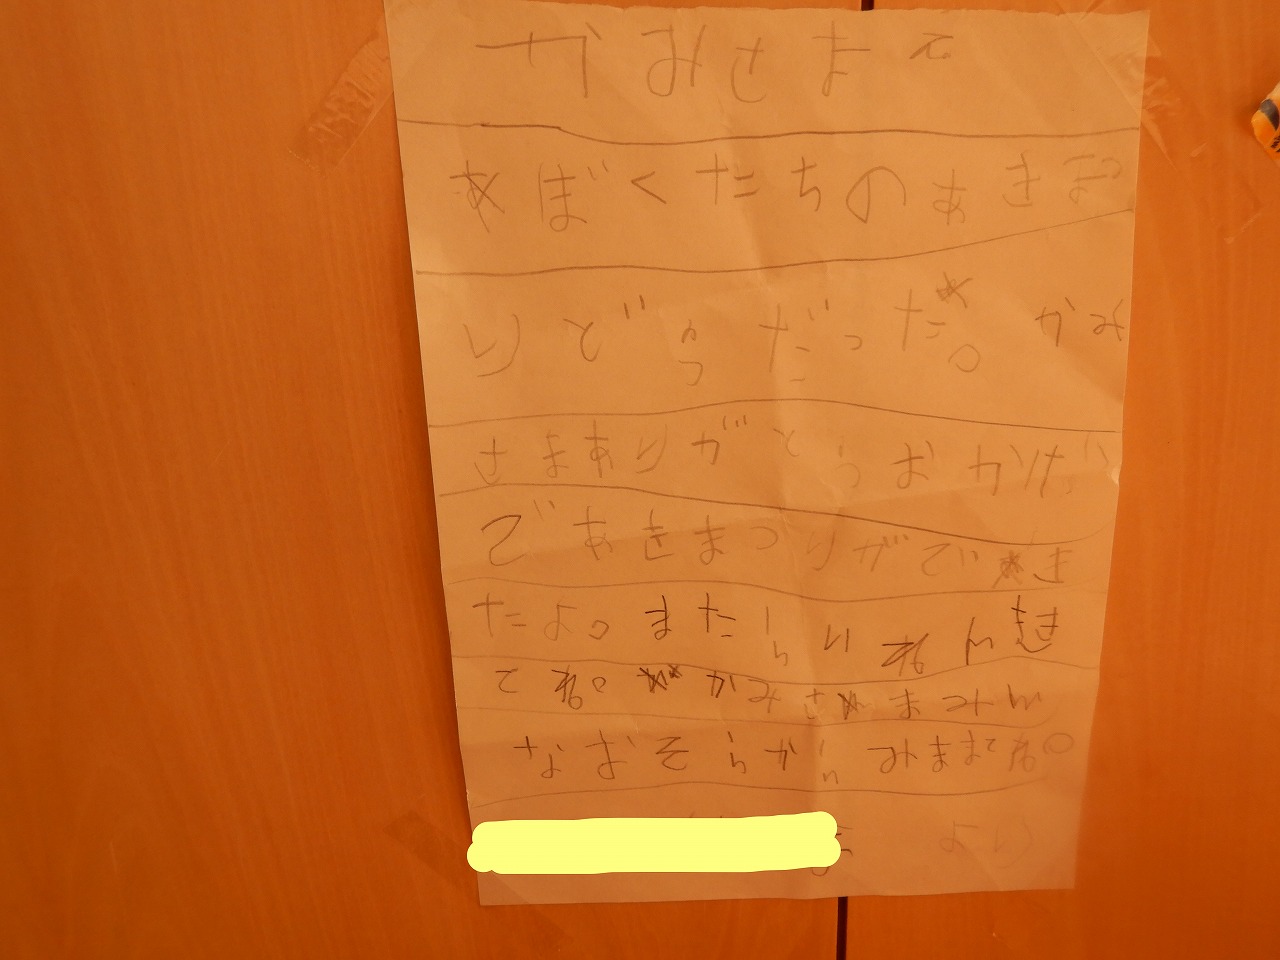 かみさまえ
ぼくたちのあきまつ
りどうだった。かみ
さまありがとうおかげ
であきまつりができ
たよ。またらいねんき
てね。かみさま
なおそらから てね。
より